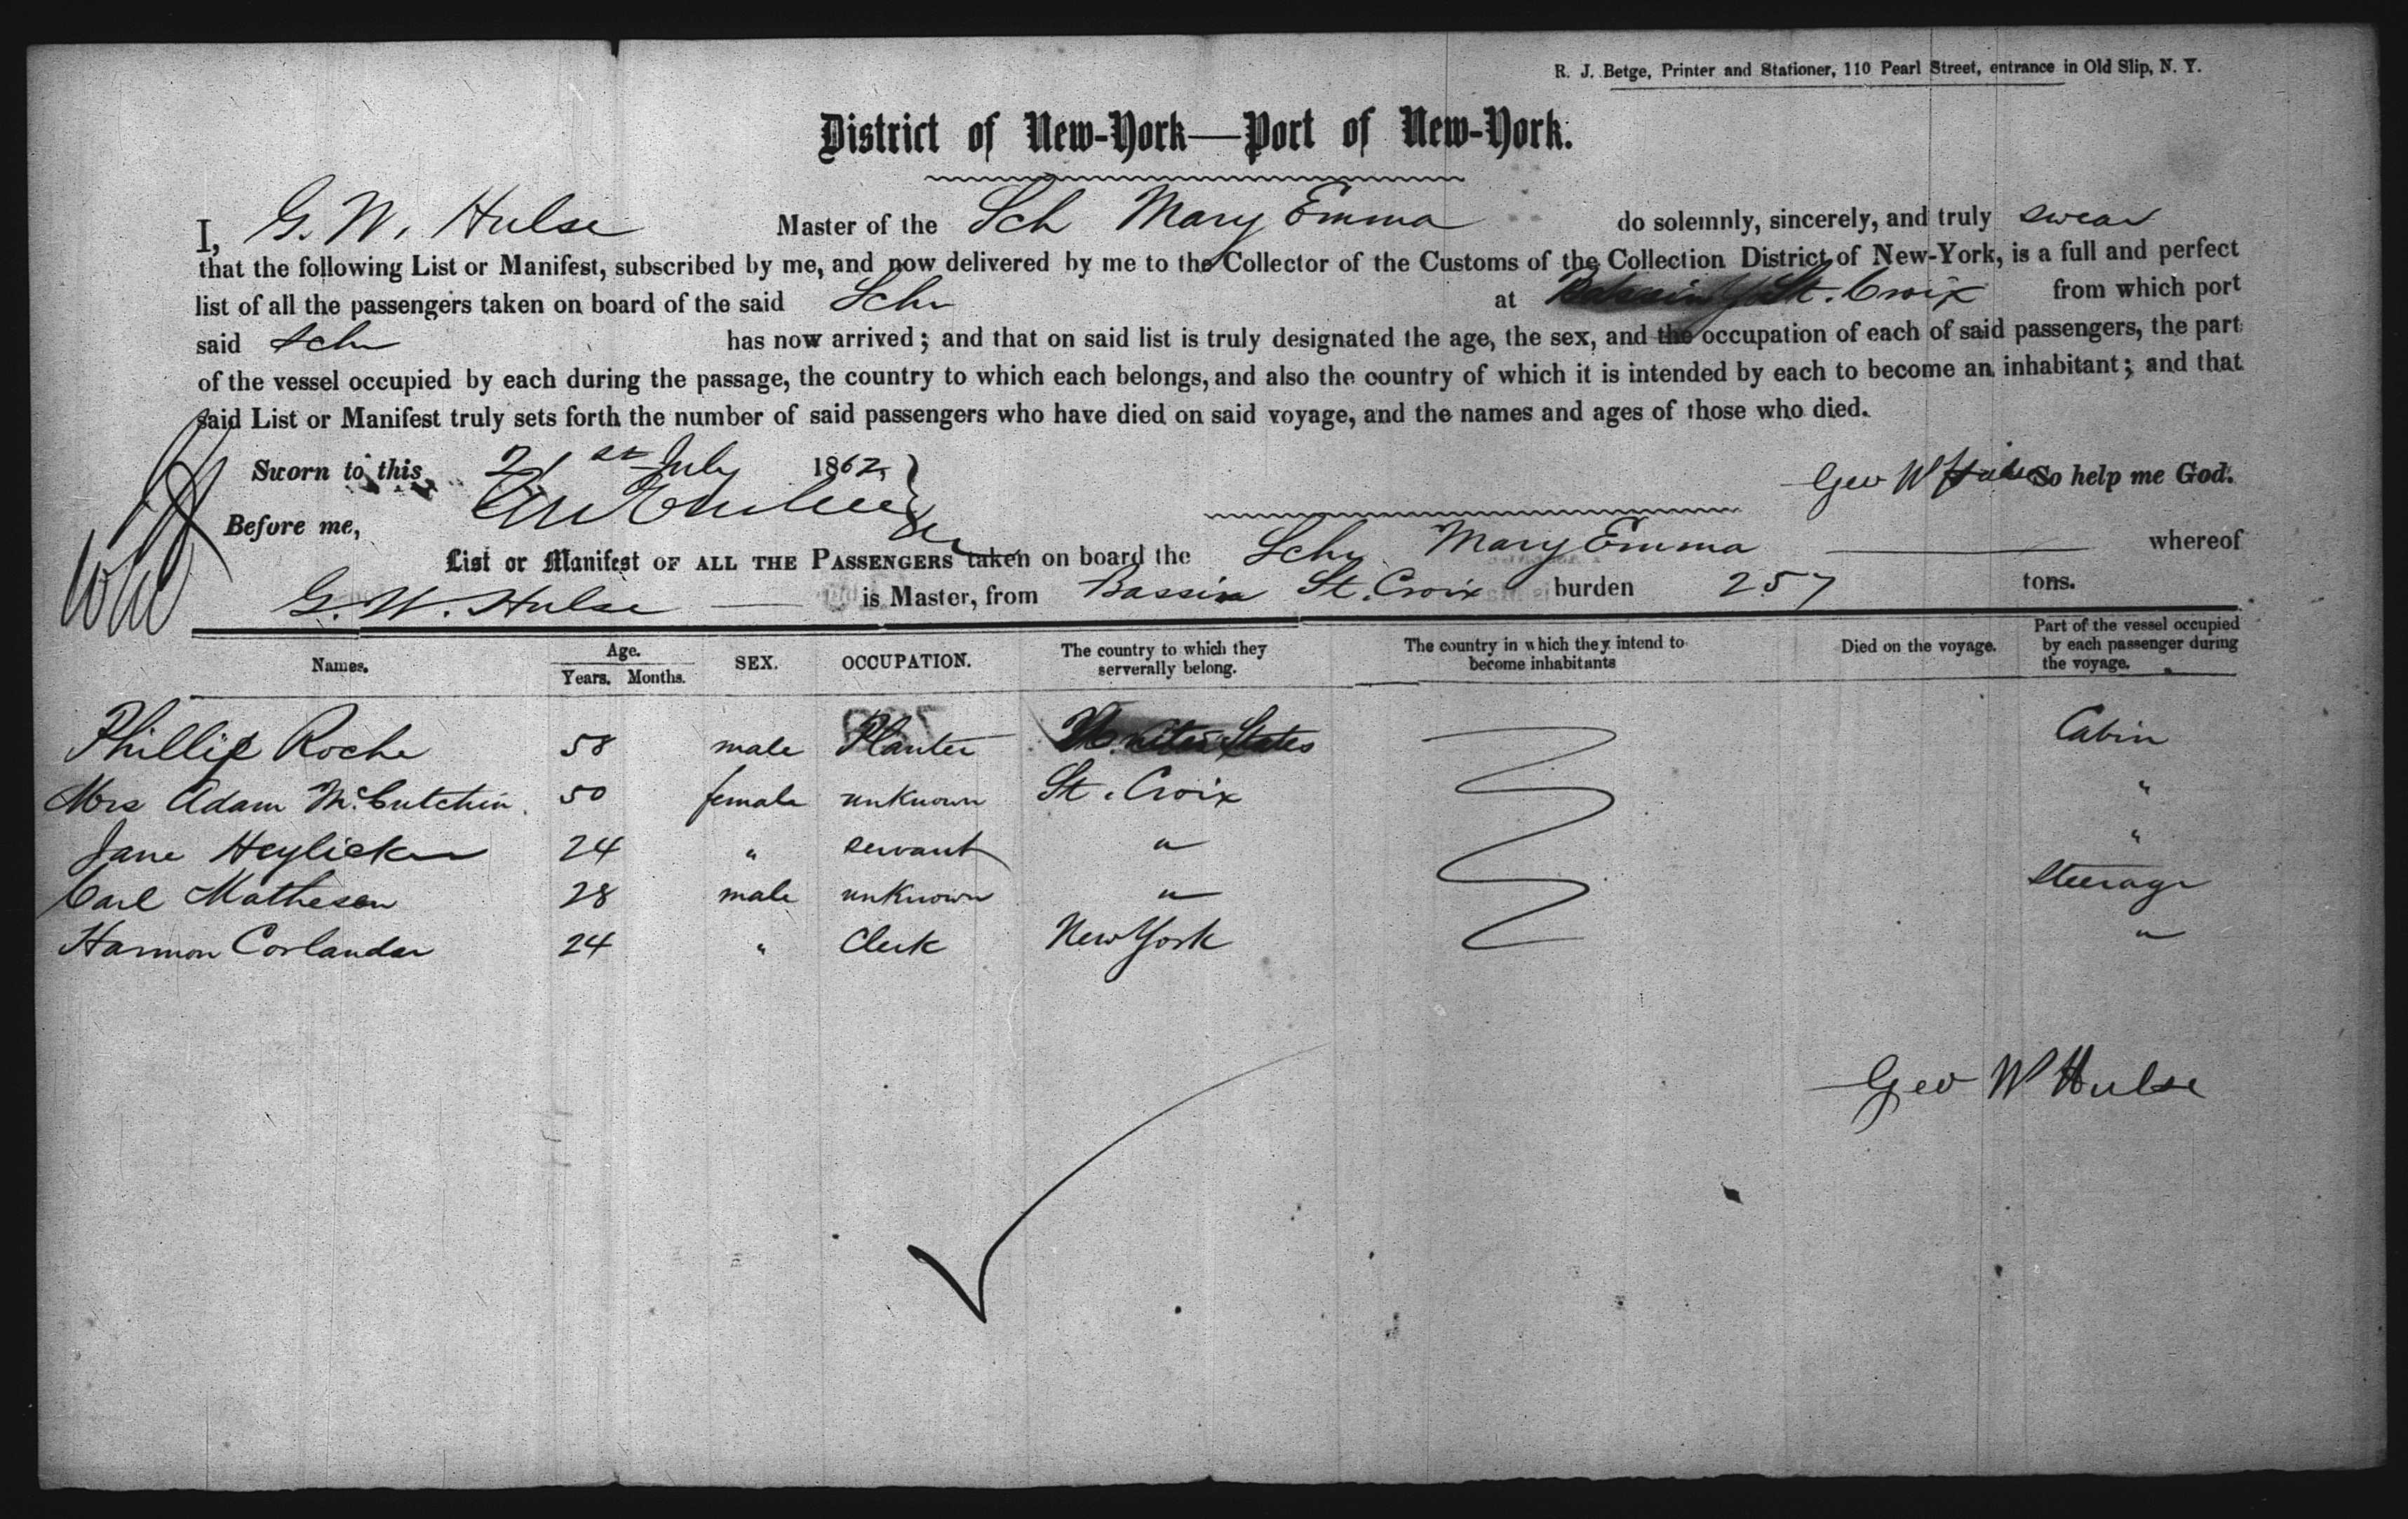 R. J. Betge, Printer and Stationer, 110 Pearl Street, entrance in Old Slip, N. Y.
District of New-York—Port of New-York.
I, G. W. Hulse Master of the Sch Mary Emma do solemnly, sincerely, and truly swear
that the following List or Manifest, subscribed by me, and now delivered by me to the Collector of the Customs of the Collection District of New-York, is a full and perfect
list of all the passengers taken on board of the said Schr at Bassin St. Croix from which port
said Schr has now arrived; and that on said list is truly designated the age, the sex, and the occupation of each of said passengers, the part
of the vessel occupied by each during the passage, the country to which each belongs, and also the country of which it is intended by each to become an inhabitant; and that
said List or Manifest truly sets forth the number of said passengers who have died on said voyage, and the names and ages of those who died.
Sworn to this 21st July 1862 Geo W Hulse So help me God.
Before me,
List or Manifest OF ALL THE PASSENGERS taken on board the Schr Mary Emma whereof
G. W. Hulse is Master, from Bassin St. Croix burden 257 tons.
Names. Age. Years. Months. SEX. OCCUPATION. The country to which they serverally belong. The country in which they intend to become inhabitants Died on the voyage. Part of the vessel occupied by each passenger during the voyage.
Phillip Roche 58 male Planter United States Cabin
Mrs Adam McCutchin. 50 female unknown St. Croix "
Jane Heylicker 24 " servant " "
Carl Mathesen 28 male unknown " Steerage
Harmon Corlander 24 " Clerk New York "
Geo W Hulse